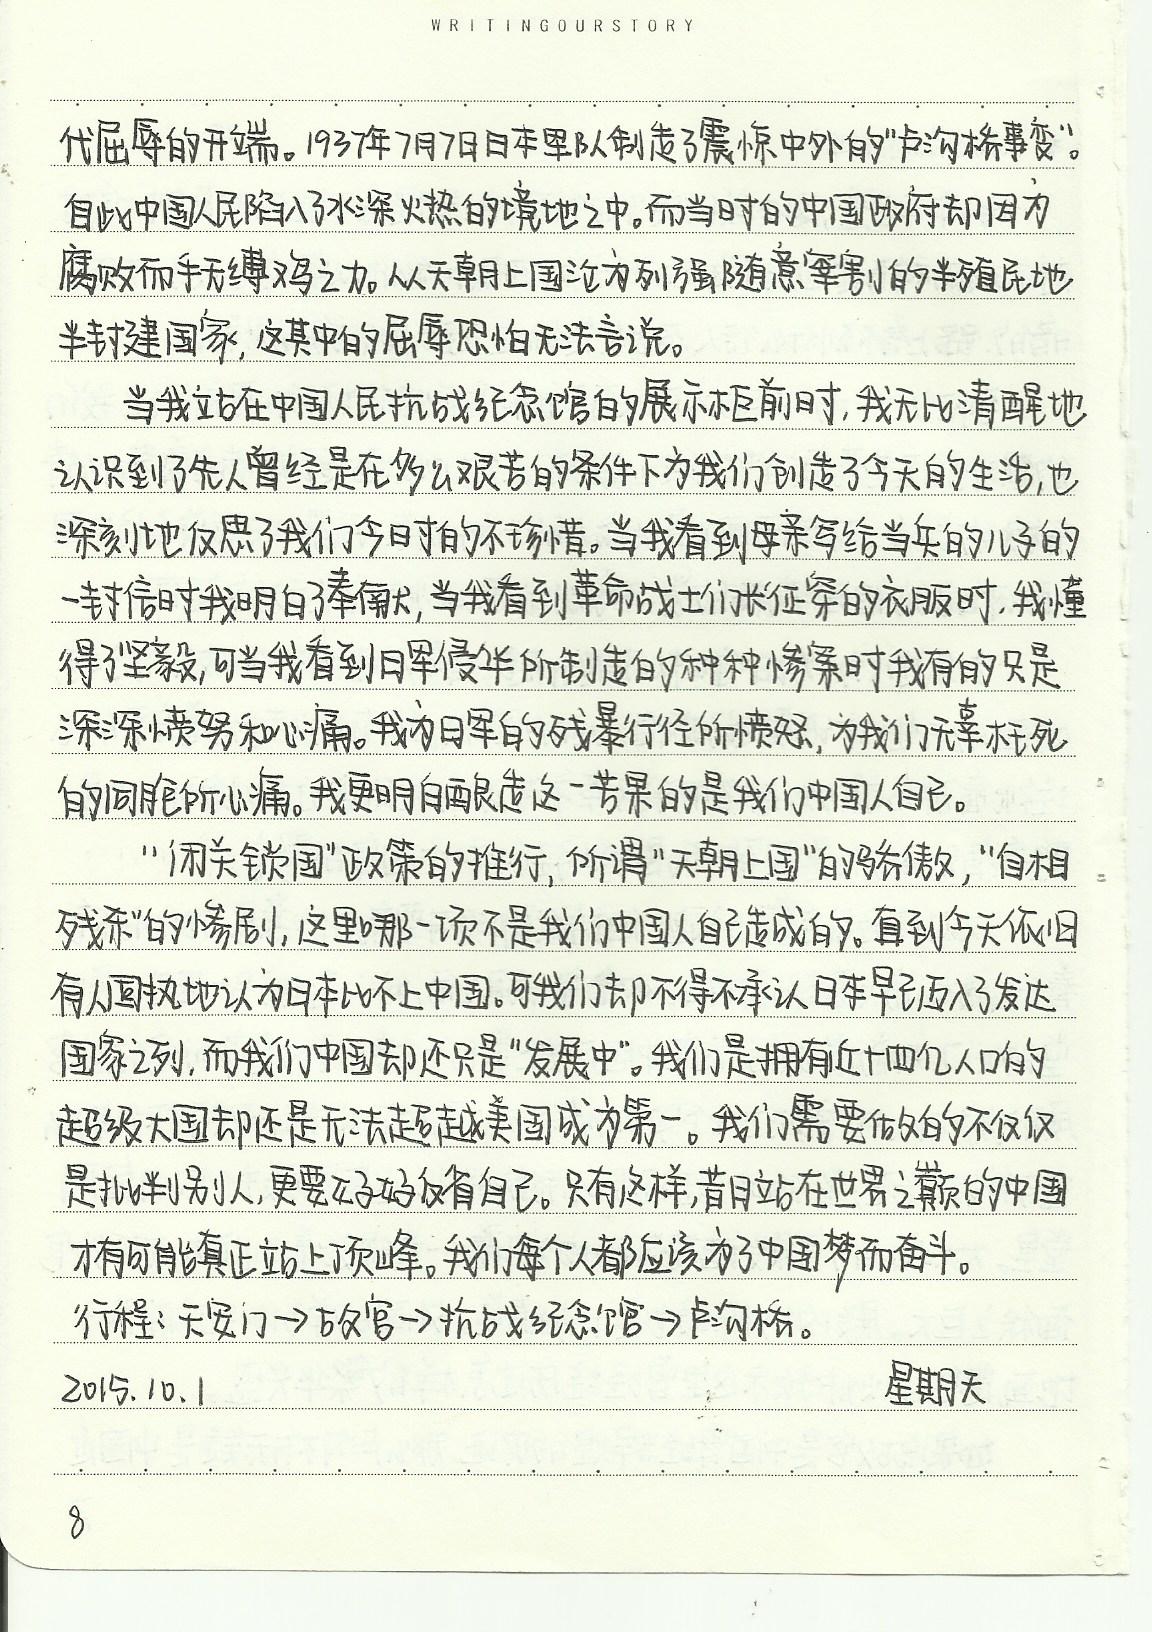 WRITINGOURSTORY
代屈辱的开端。1937年7月7日日本军队制造了震惊中外的“卢沟桥事变”。
自此中国人民陷入了水深火热的境地之中。而当时的中国政府却因为
腐败而手无缚鸡之力。从天朝上国沦为列强随意宰割的半殖民地
半封建国家，这其中的屈辱恐怕无法言说。
当我站在中国人民抗战纪念馆的展示柜前时，我无比清醒地
认识到了先人曾经是在多么艰苦的条件下为我们创造了今天的生活，也
深刻地反思了我们今日时的不珍惜。当我看到母亲写给当兵的儿子的
一封信时我明白了奉献，当我看到革命战士们长征穿的衣服时，我懂
得了坚毅，可当我看到日军侵华所制造的种种惨案时我有的只是
深深愤努和心痛。我为日军的残暴行径所愤怒，为我们无辜枉死
的同胞所心痛。我更明白酿造这一苦果的是我们中国人自己。
“闭关锁国”政策的推行，所谓“天朝上国”的骄傲，“自相
残杀”的惨剧，这里哪一项不是我们中国人自己造成的。直到今天依旧
有人固执地认为日本比不上中国。可我们却不得不承认日本早已迈入了发达
国家之列，而我们中国却还只是“发展中”。我们是拥有近十四亿人口的
超级大国却还是无法超越美国成为第一。我们需要做的不仅仅
是批判别人，更要好好反省自己。只有这样，昔日站在世界之巅的中国
才有可能真正站上顶峰。我们每个人都应该为了中国梦而奋斗。
行程：天安门→故宫→抗战纪念馆→卢沟桥。
2015.10.1 星期天
8